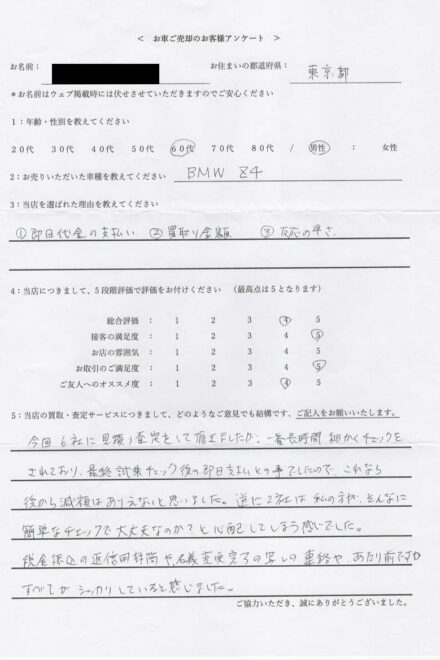 ＜ お車ご売却のお客様アンケート ＞
お名前： お住まいの都道府県： 東京都
＊お名前はウェブ掲載時には伏せさせていただきますのでご安心ください
1：年齢・性別を教えてください
20代 30代 40代 50代 60代 70代 80代 / 男性 ： 女性
2：お売りいただいた車種を教えてください BMW Z4
3：当店を選ばれた理由を教えてください
①即日代金の支払い ②買取り金額 ③反応の早さ
4：当店につきまして、5段階評価で評価をお付けください （最高点は5となります）
総合評価 ： 1 2 3 4 5
接客の満足度 ： 1 2 3 4 5
お店の雰囲気 ： 1 2 3 4 5
お取引のご満足度 ： 1 2 3 4 5
ご友人へのオススメ度 ： 1 2 3 4 5
5：当店の買取・査定サービスにつきまして、どのようなご意見でも結構です、ご記入をお願いいたします。
今回6社に見積り査定をして頂きましたが、一番長時間、細かくチェックを
されており、最終試乗チェック後の即日支払との事でしたので、これなら
後から減額はありえないと思いました。逆に2社は私の方が、そんなに
簡単なチェックで大丈夫なのか？と心配してしまう感じでした。
税金振込の返信用封筒や名義変更完了の写しの連絡や、あたり前ですが
すべてがシッカリしていると感じました。
ご協力いただき、誠にありがとうございました。